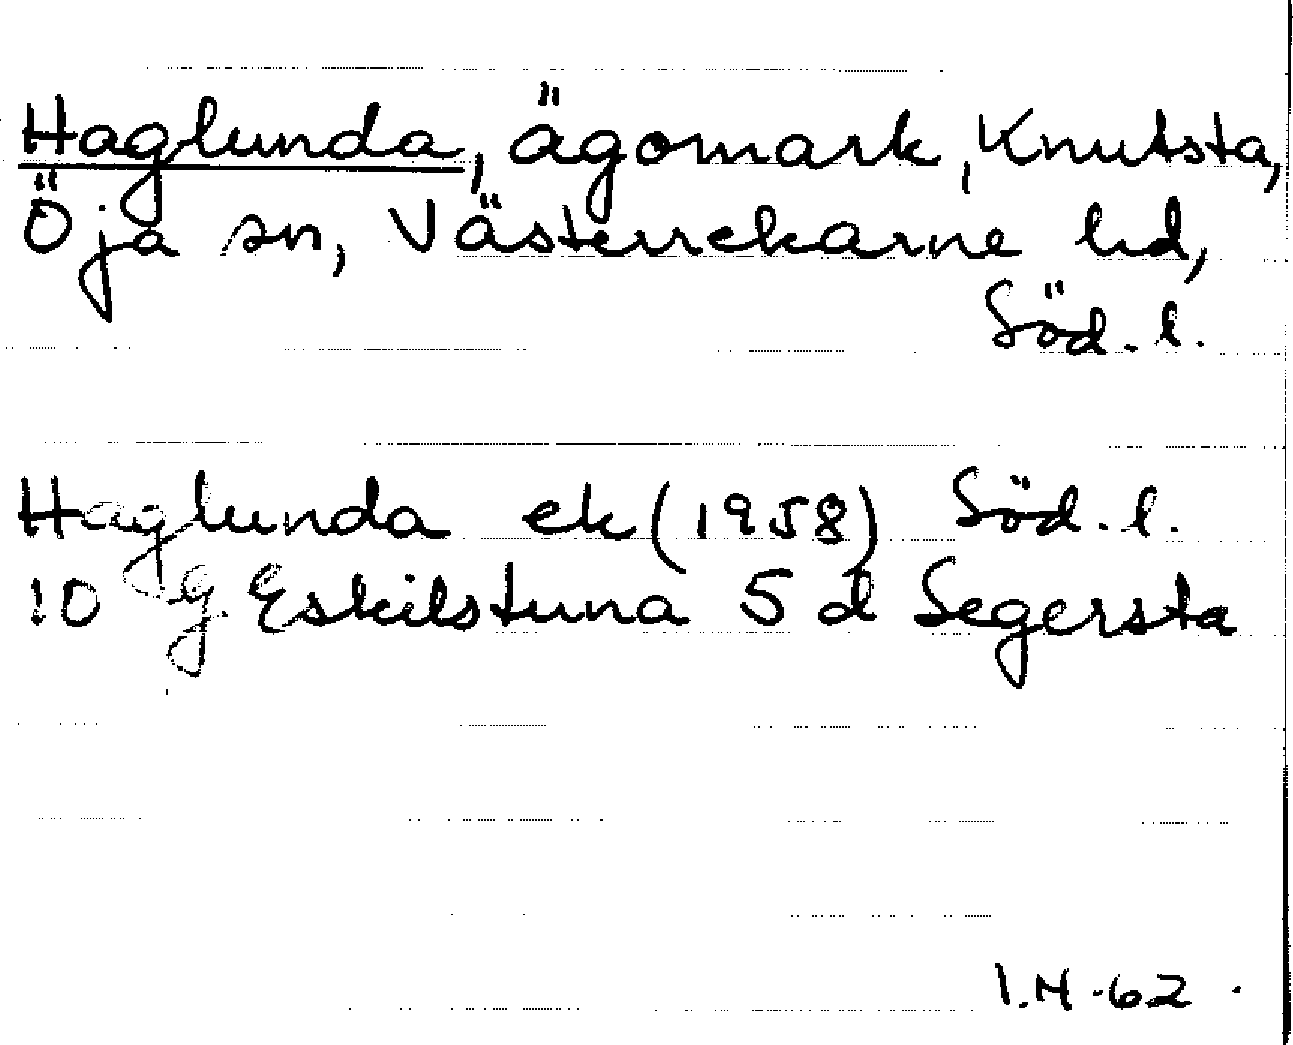 Haglunda, ägomark, Knutsta,
Öja sn, Västerrekarne hd,
Söd. l.
Haglunda ek (1958) Söd. l.
10 G. Eskilstuna 5 d Segersta
I.H -62.